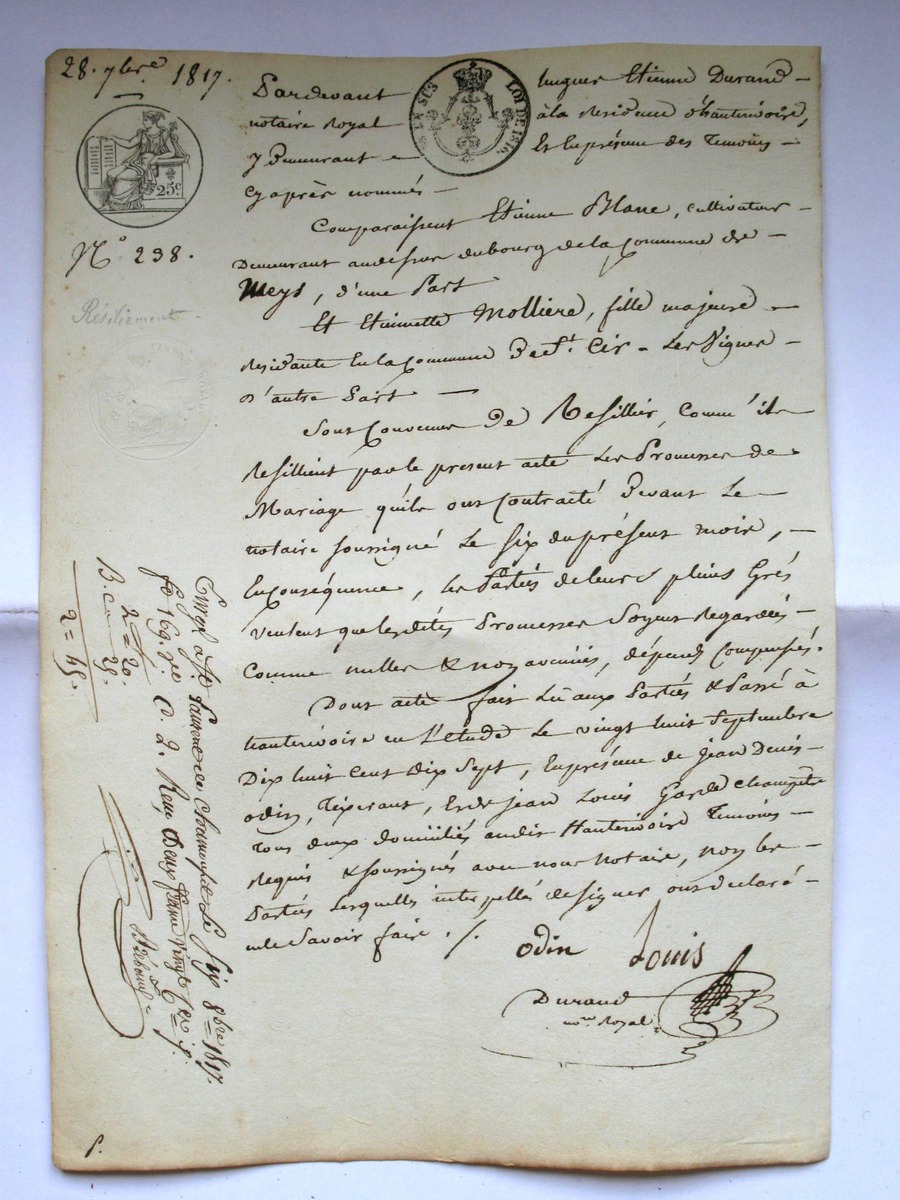 28. 7bre. 1817.
Pardevant hugues Etienne Durand
notaire Royal à la Residence d'hauterivoire,
y Demeurant Et En présence des Temoins
Cy après nommés
EN SUS LOI DE 1816.
25c.
N° 238.
Résiliement
Comparaissent Etienne Blanc, cultivateur
Demeurant au dessus du bourg de la Commune de
Meys, d'une Part
Et Etiennette Mollière, fille majeure
Residante En la Commune De St. Cir - Les Vignes
D'autre Part
Sont Convenus De Resillier, Comme ils
Resillient par le present acte Les Promesses de
Mariage qu'ils ont Contracté Devant Le
notaire soussigné Le six du présent mois,
En conséquence, les Parties de leurs pleins Grés
Veulent que les dites Promesses Soyent Regardées
Comme nulles & non avenües, dépends Compensés.
Dont acte fait Lü aux Parties & Passé à
hauterivoire en L'etude Le vingt huit Septembre
Dix huit Cent Dix Sept, En présence de Jean Denis
odin, Tixerant, Et de Jean Louis Garde champêtre
Tous deux domiciliés audit Hauterivoire Temoins
Requis & soussignés avec nous Notaire, non les
Parties Lesquelles interpellés de signer ont declaré
ne le Savoir faire ./.
odin Louis
Durand
nre Royal
Enrgé à St Laurent de Chamousset Le six 8bre 1817.
fo 169. Vo C. 2. Reçu Deux francs vingt Ces
2 = 20.
B. c 22.